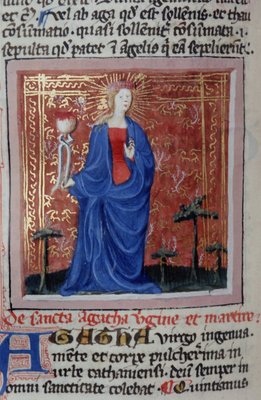 et č Vel ab aga qd est sollenis. et thau
cōsumatio. quasi sollenit cōsumata. i.
sepulta qd patet ī Agelio q ea sepelierūt.
De sancta agatha ūgine et martire.
AGATHA Virgo ingenua.
mēte et corpe pulcherima in
urbe cathaniensi. deū semper in
omni sanctitate colebat. Quintianus